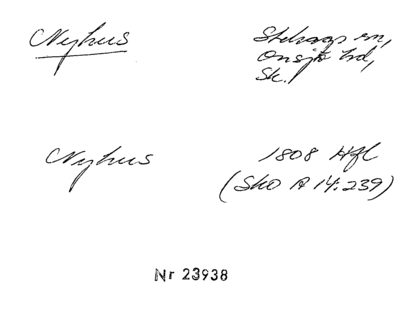 Nyhus
Stehags sn,
Onsjö hd,
Sk.
Nyhus
1808 Hfl
(Sko A 14:239)
Nr 23938